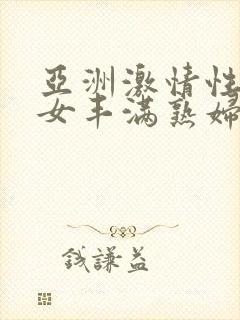 亞洲激情性
女丰满熟婦
钱謙益